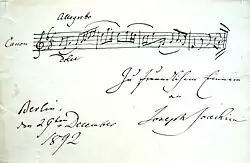 Allegretto
Canon
dolce
Zu freundlichem Erinnern
an
Joseph Joachim
Berlin
den 29ten December
1892